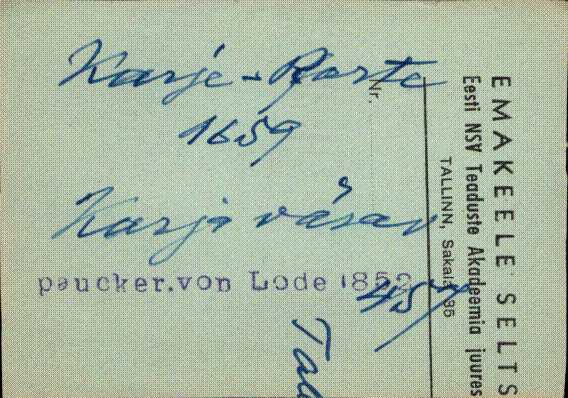 Karje-Porte
1659
Karja värav
paucker.von Lode 1852
457
Nr.
EMAKEELE SELTS
Eesti NSV Teaduste Akadeemia juures
TALLINN, Sakala 35